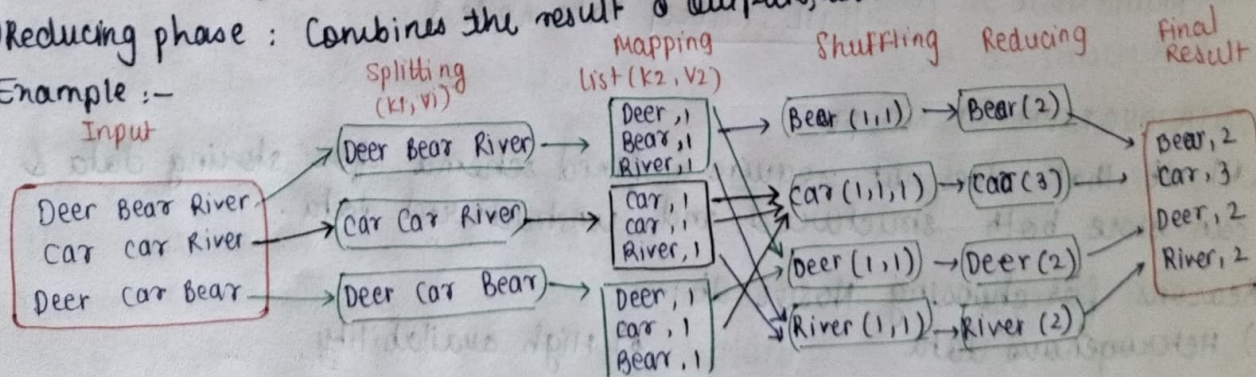 Reducing phase : Combines the result
Example :-
Input
Deer Bear River
Car Car River
Deer Car Bear
Splitting
(K1, V1)
Deer Bear River
Car Car River
Deer Car Bear
Mapping
List (K2, V2)
Deer, 1
Bear, 1
River, 1
Car, 1
Car, 1
River, 1
Deer, 1
Car, 1
Bear, 1
Shuffling
Bear (1,1)
Car (1,1,1)
Deer (1,1)
River (1,1)
Reducing
Bear (2)
Car (3)
Deer (2)
River (2)
Final
Result
Bear, 2
Car, 3
Deer, 2
River, 2